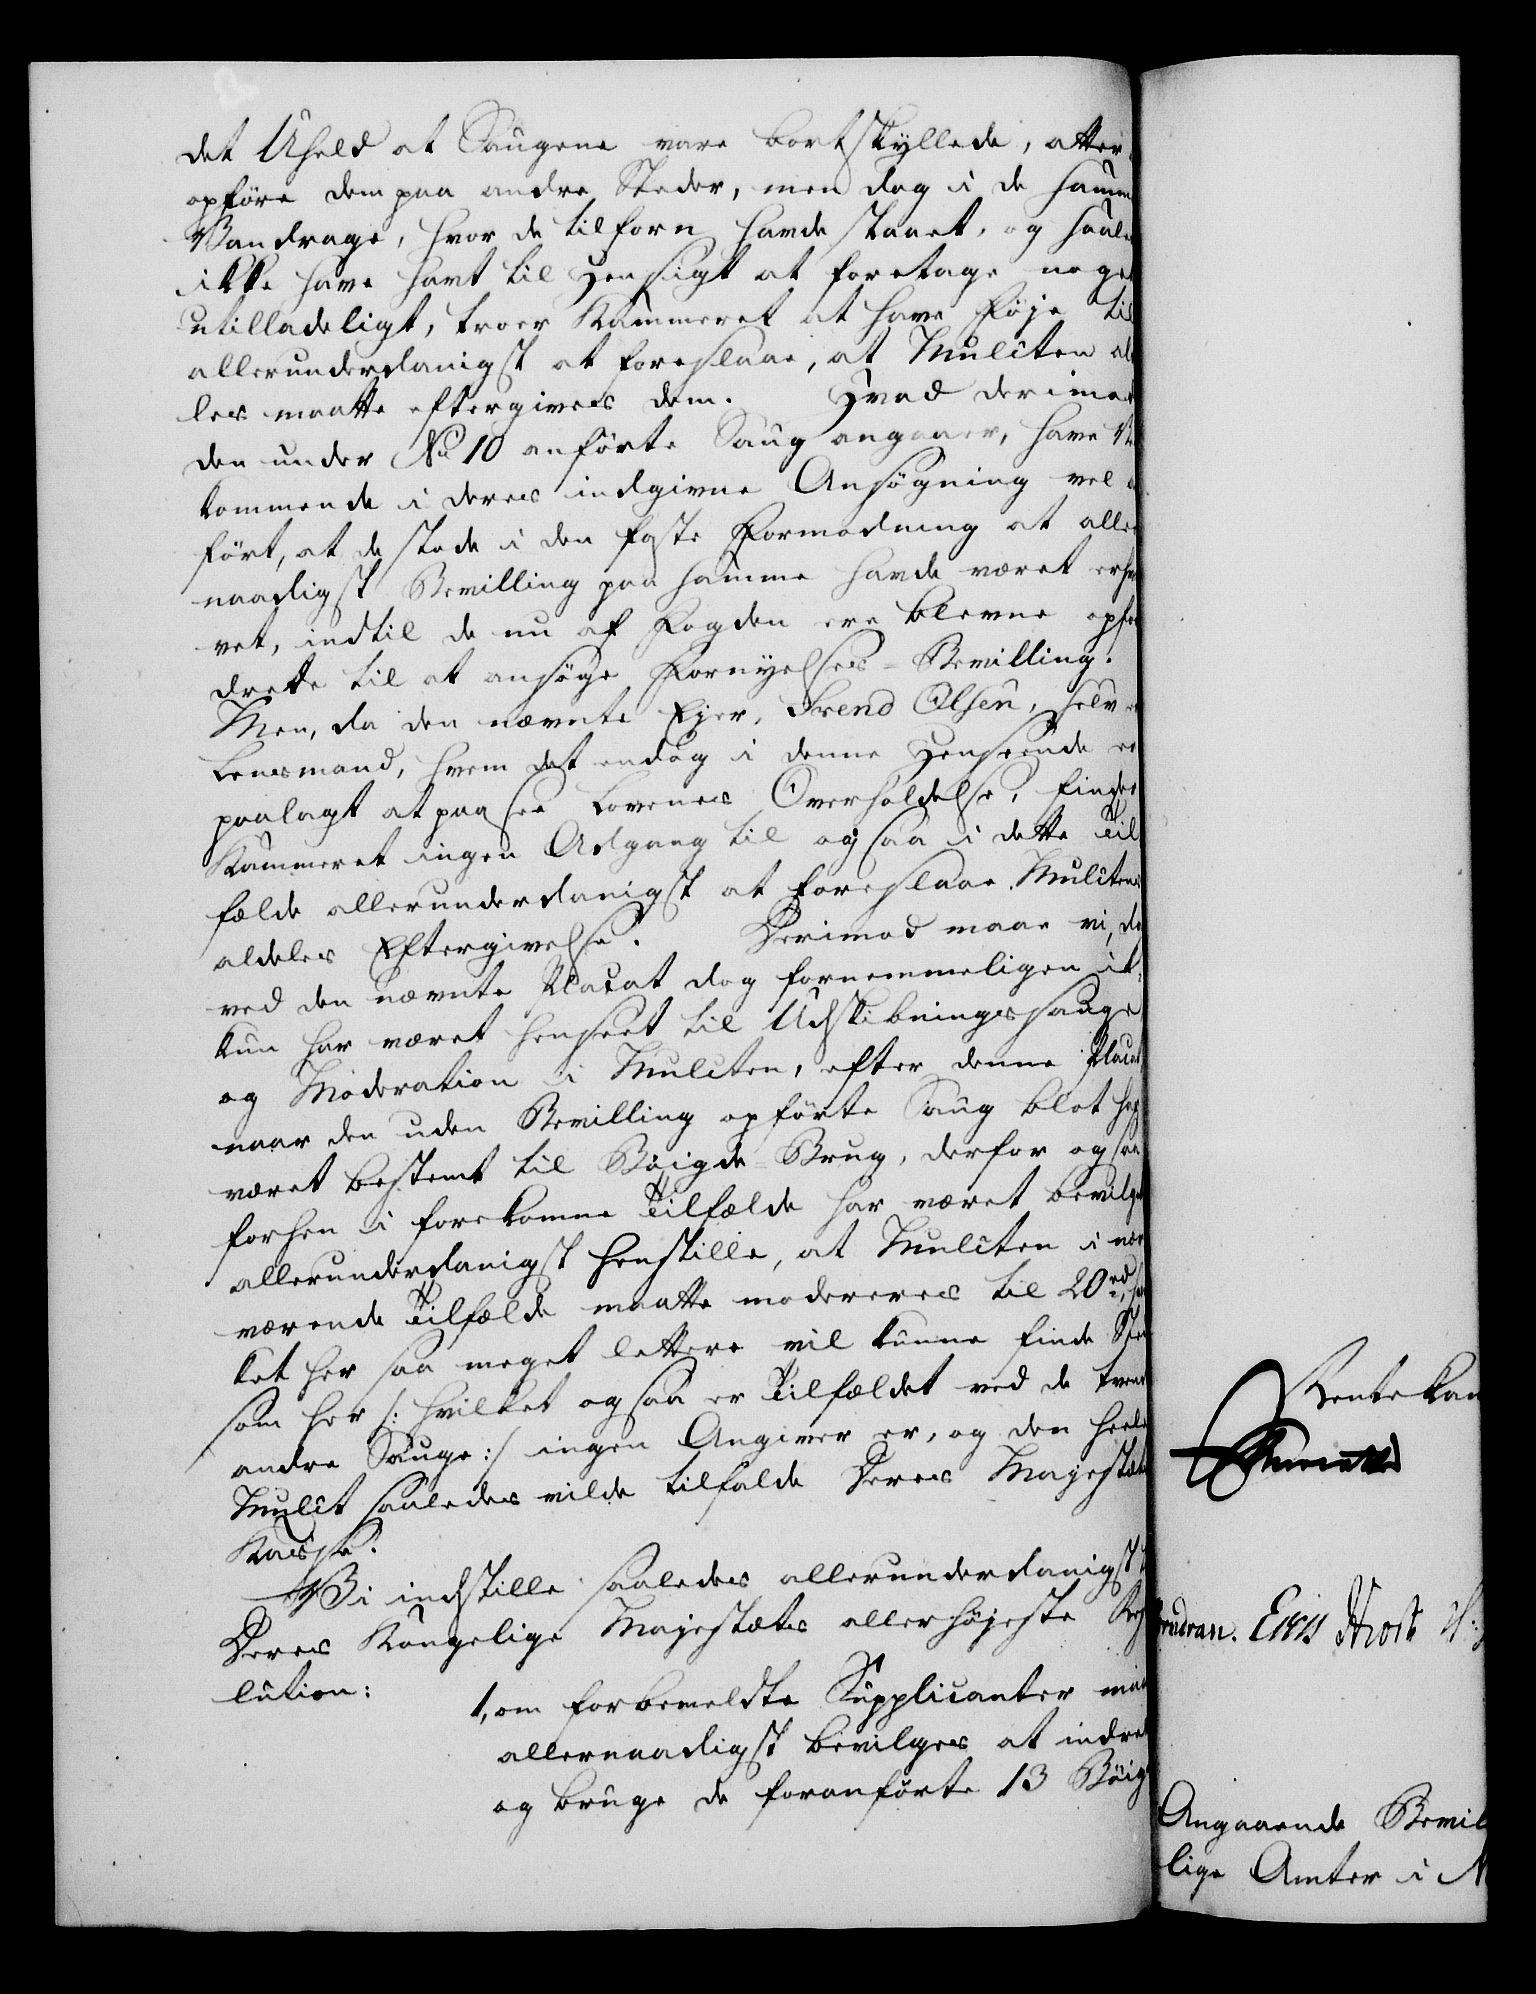 det Uheld at Saugene vare bortskyllede, atter
opföre dem paa andre Steder, men dog i de samm
Vandrage, hvor de tilforn havde staaet, og saale
ikke have havt til Hensigt at foretage noget
utilladeligt, troer Kammeret at have Föje til
allerunderdanigst at foreslaae, at Mulcten al
les maatte eftergives dem. Hvad derimod
den under No 10 anförte Saug angaaer, have V
kommende i deres indgivne Ansögning vel
fört, at de stode i den faste Formodning at aller
naadigst Bevilling paa samme havde været erhv
vet, indtil de nu af Fogden ere blevne opfo
drede til at ansöge Fornyelses-Bevilling.
Men, da den nævnte Ejer, Svend Olsen, selv er
Lensmand, hvem det endog i denne Henseende er
paalagt at paasee Lovenes Overholdelse, finder
Kammeret ingen Adgang til ogsaa i dette Til
fælde allerunderdanigst at foreslaae Mulctens
aldeles Eftergivelse. Derimod maae vi, da
ved den nævnte Placat dog fornemmeligen ik-
kun har været henseet til Udskibningssauge
og Moderation i Mulcten, efter denne Placat
naar den uden Bevilling opförte Saug blot ha
været bestemt til Böigde-Brug, derfor ogsaa
forhen i forekomne Tilfælde har været bevilget
allerunderdanigst henstille, at Mulcten i nær
værende Tilfælde maatte modereres til 20 rd,
ket her saa meget lettere vil kunne finde Sted
som her /: hvilket ogsaa er Tilfældet ved de tvende
andre Sauge :/ ingen Angiver er, og den heele
Mulct saaledes vilde tilfalde Deres Majestæts
Kasse.
Vi indstille saaledes allerunderdanigst
Deres Kongelige Majestæts allerhöjeste Re
lution:
1, om forbemeldte Supplicanter maa
allernaadigst bevilges at indret
og bruge de foranförte 13 Böig
Rentekam
Angaaende Bevil
lige Amter i N